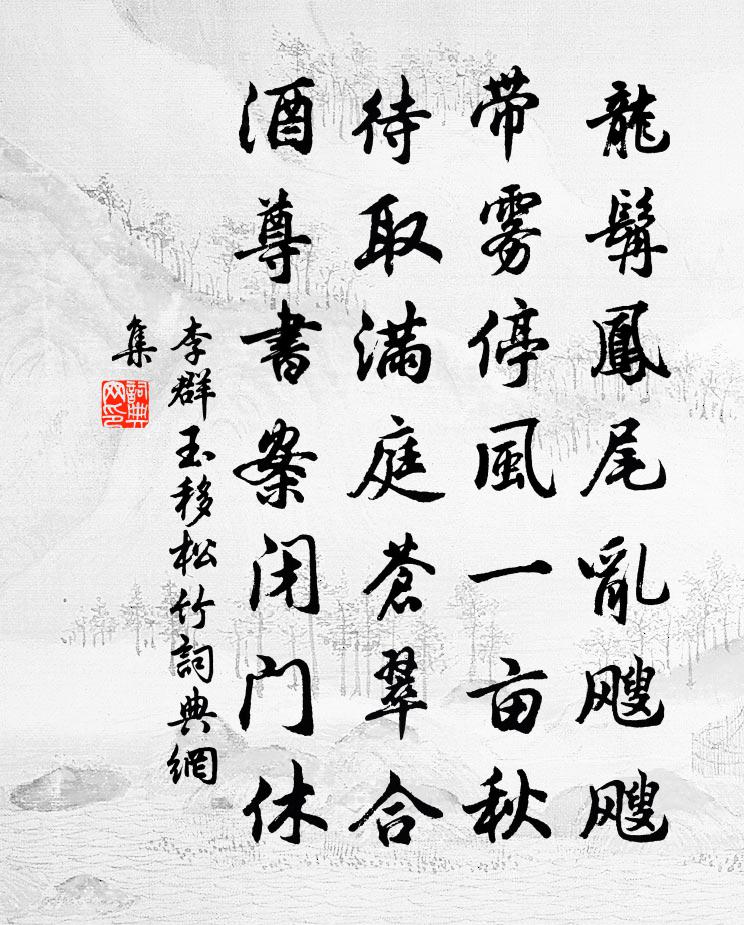 龍髯鳳尾亂颼颼
帶霧停風一亩秋
待取滿庭蒼翠合
酒尊書案闭门休
李群玉移松竹詞典網
集
詞典
网印